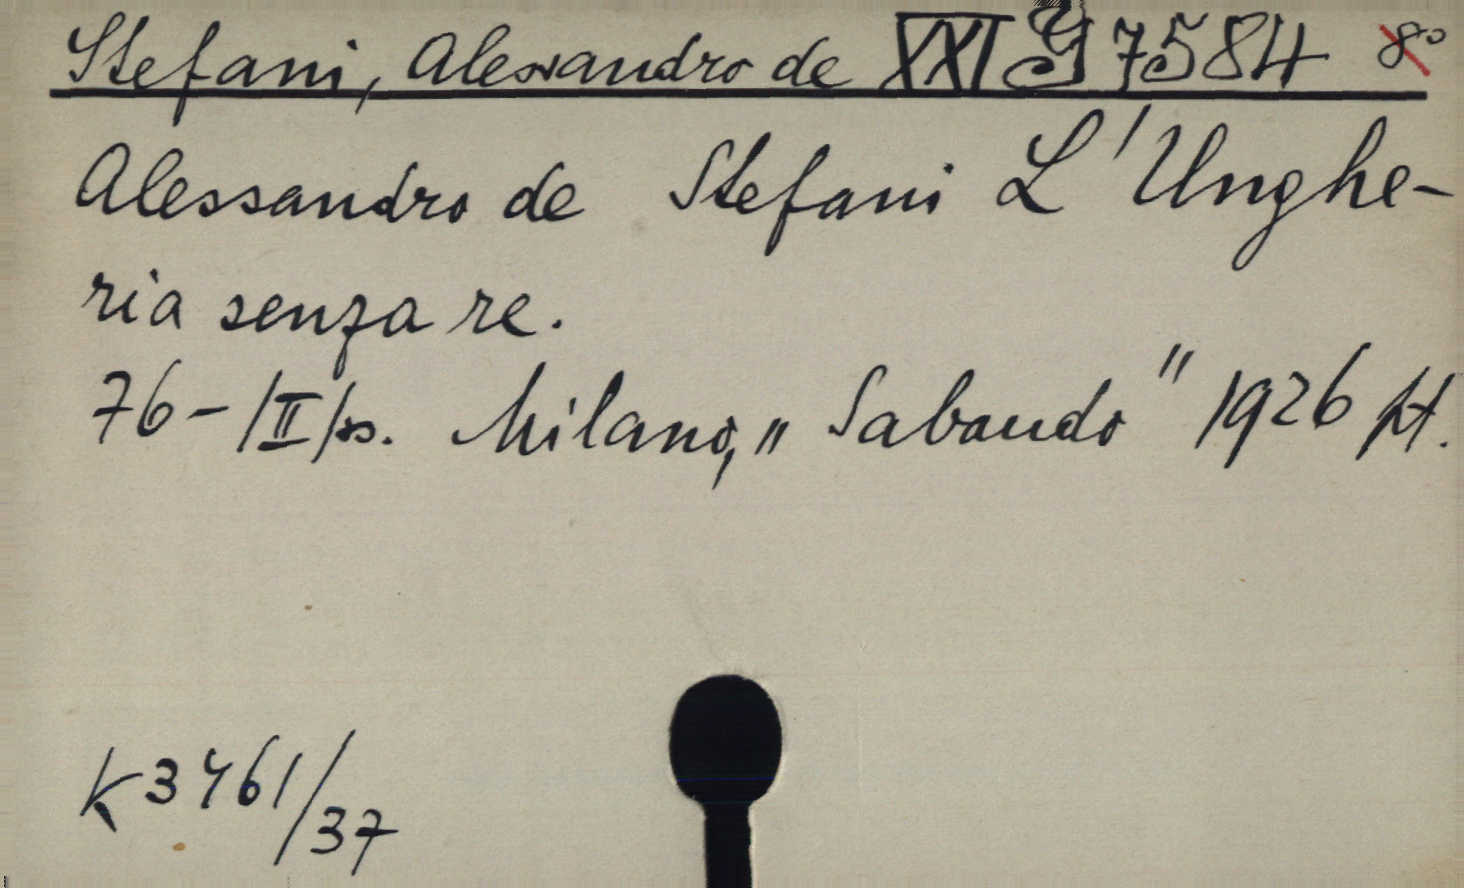 Stefani, Alessandro de XXI G 7584 8°
Alessandro de Stefani L'Unghe-
ria senza re.
76-/II/s. Milano, „Sabaudo" 1926 Pt.
K 3461/37